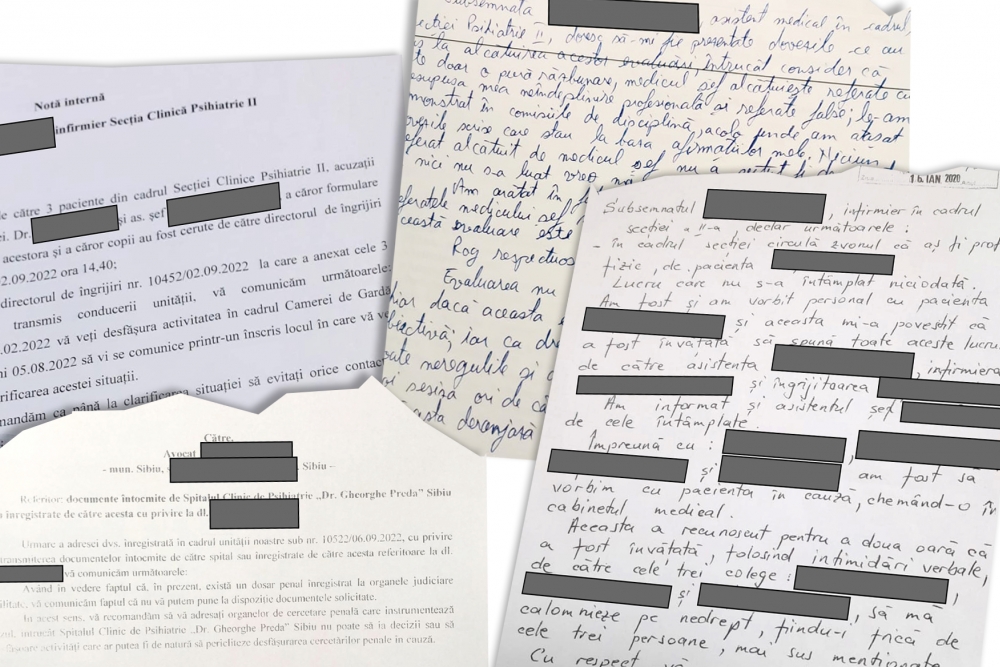 Notă internă
infirmier Secția Clinică Psihiatrie II
de către 3 paciente din cadrul Secției Clinice Psihiatrie II, acuzații
i. Dr. și as. șef a căror formulare
acestora și a căror copii au fost cerute de către directorul de îngrijiri
2.09.2022 ora 14,40;
directorul de îngrijiri nr. 10452/02.09.2022 la care a anexat cele 3
transmis conducerii unității, vă comunicăm următoarele:
.02.2022 vă veți desfășura activitatea în cadrul Camerei de Gardă
ni 05.08.2022 să vi se comunice printr-un înscris locul în care vă ve
rificarea acestei situații.
mandăm ca până la clarificarea situației să evitați orice contac
Subsemnata , asistent medical în cadrul
ecției Psihiatrie II, doresc să-mi fie prezentate dovezile ce au
la alcătuirea acestor evaluări, întrucât consider că
te doar o pură răzbunare, medicul șef alcătuiește referate cu
supusa mea neîndeplinire profesională și referate false; le-am
monstrat în comisiile de disciplină, acolo unde am atașat
ovezile scrise care stau la baza afirmațiilor mele. Niciun
eferat alcătuit de medicul șef nu a
nici nu s-a luat vreo
Am arătat în
referatele medicului șef
ceastă evaluare este
Rog respectuos
Evaluarea nu
hiar dacă aceasta
biectivă; iar ca
oate neregulile și
sesiza ori de câ
asta deranjară
16. IAN 2020
Subsemnatul , infirmier în cadrul
secției a II-a declar următoarele:
- în cadrul secției circulă zvonul că aș fi prof
fizic, de pacienta
Lucru care nu s-a întâmplat niciodată.
Am fost și am vorbit personal cu pacienta
și aceasta mi-a povestit că
a fost învățată să spună toate aceste lucru
de către asistenta , infirmiera
și îngrijitoarea
Am informat și asistentul șef
de cele întâmplate.
Împreună cu: ,
și am fost să
vorbim cu pacienta în cauză, chemând-o în
cabinetul medical.
Aceasta a recunoscut pentru a doua oară că
a fost învățată, folosind intimidări verbale,
de către cele trei colege: ,
și , să mă
calomnieze pe nedrept, fiindu-i frică de
cele trei persoane, mai sus menționate
Cu respect vă
Către,
Avocat
- mun. Sibiu, . Sibiu –
Referitor: documente întocmite de Spitalul Clinic de Psihiatrie „Dr. Gheorghe Preda” Sibiu
înregistrate de către acesta cu privire la dl.
Urmare a adresei dvs. înregistrată în cadrul unității noastre sub nr. 10522/06.09.2022, cu privire
transmiterea documentelor întocmite de către spital sau înregistrate de către acesta referitoare la dl.
vă comunicăm următoarele:
Având în vedere faptul că, în prezent, există un dosar penal înregistrat la organele judiciare
ilitate, vă comunicăm faptul că nu vă putem pune la dispoziție documentele solicitate.
In acest sens, vă recomandăm să vă adresați organelor de cercetare penală care instrumentează
întrucât Spitalul Clinic de Psihiatrie „Dr. Gheorghe Preda” Sibiu nu poate să ia decizii sau să
șoare activități care ar putea fi de natură să pericliteze desfășurarea cercetărilor penale în cauză.